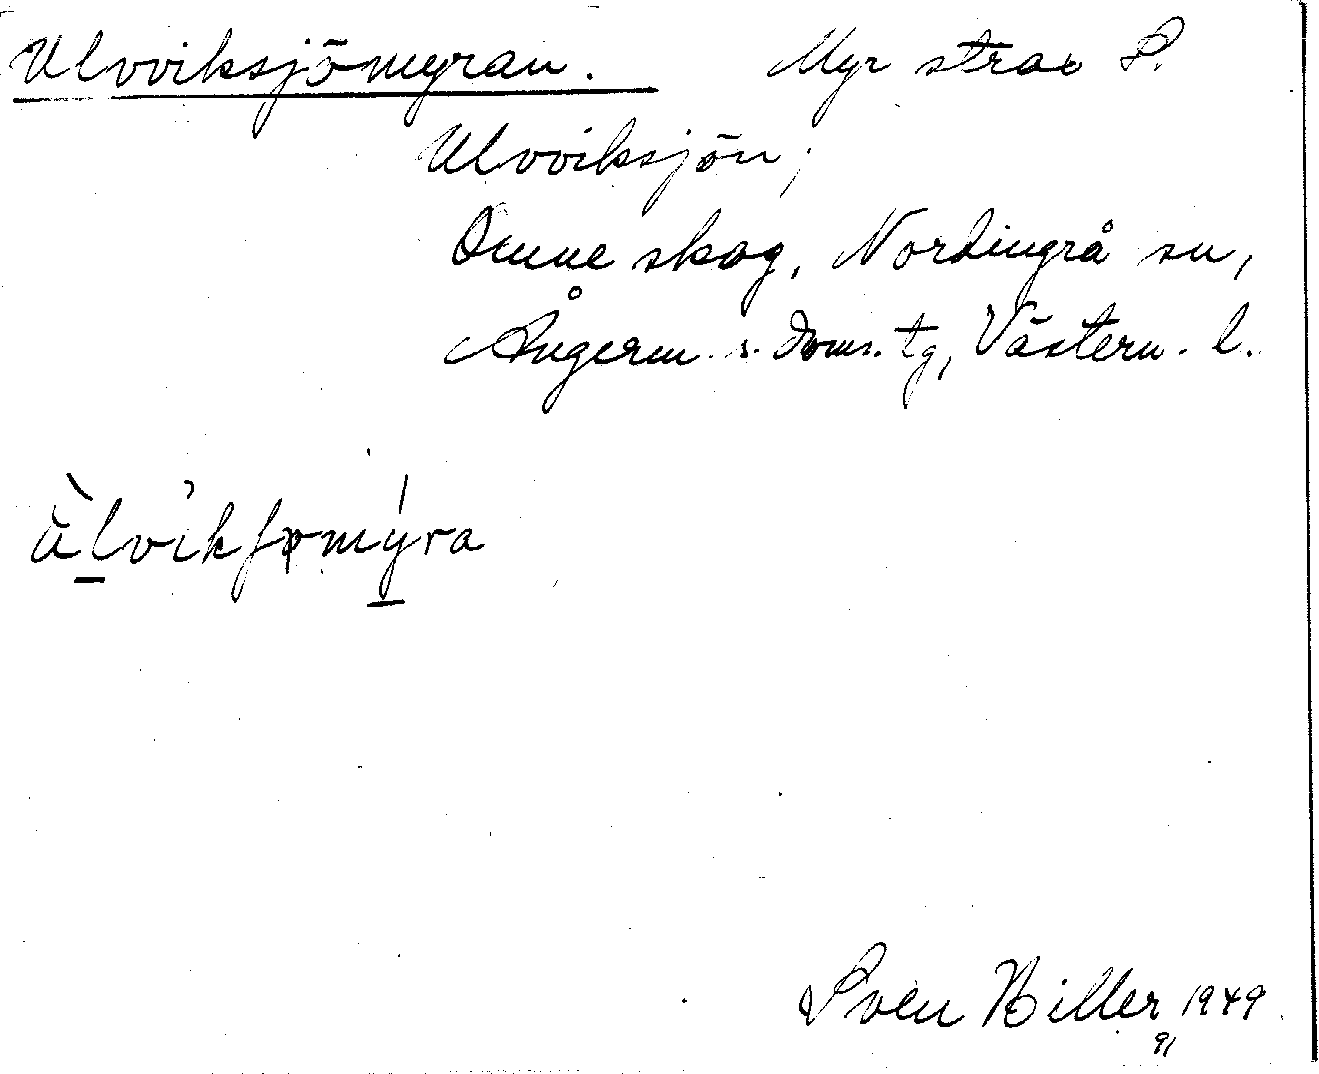 Ulvviksjömyran. Myr strax S.
Ulvviksjön;
Omne skog, Nordingrå sn,
Ångerm. s. doms. tg, Västern. l.
Sven Hiller 1949
91